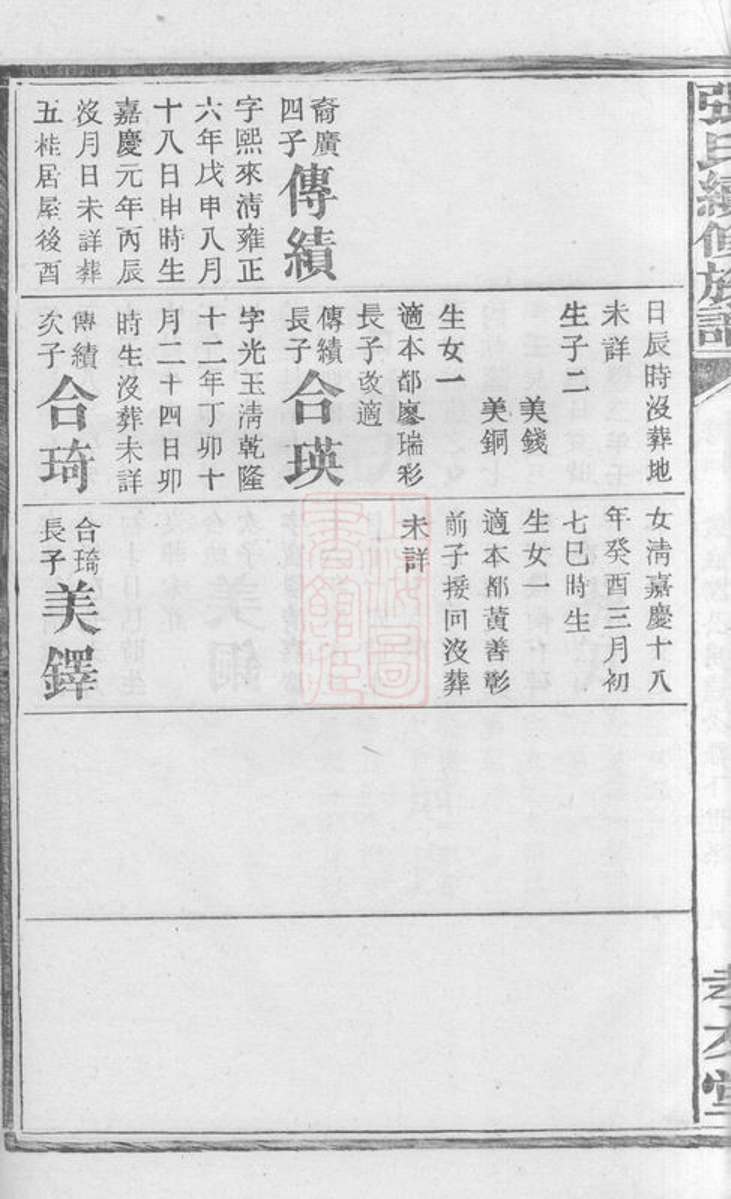 張氏續修族譜
孝友堂
裔廣
四子
傳績
字熙來淸雍正
六年戊申八月
十八日申時生
嘉慶元年丙辰
沒月日未詳葬
五桂居屋後酉
日辰時沒葬地
未詳
生子二
美錢
美銅
生女一
適本都廖瑞彩
長子改適
傳績
長子
合瑛
字光玉淸乾隆
十二年丁卯十
月二十四日卯
時生沒葬未詳
傳績
次子
合琦
女淸嘉慶十八
年癸酉三月初
七巳時生
生女一
適本都黃善彰
前子援回沒葬
未詳
合琦
長子
美鐸